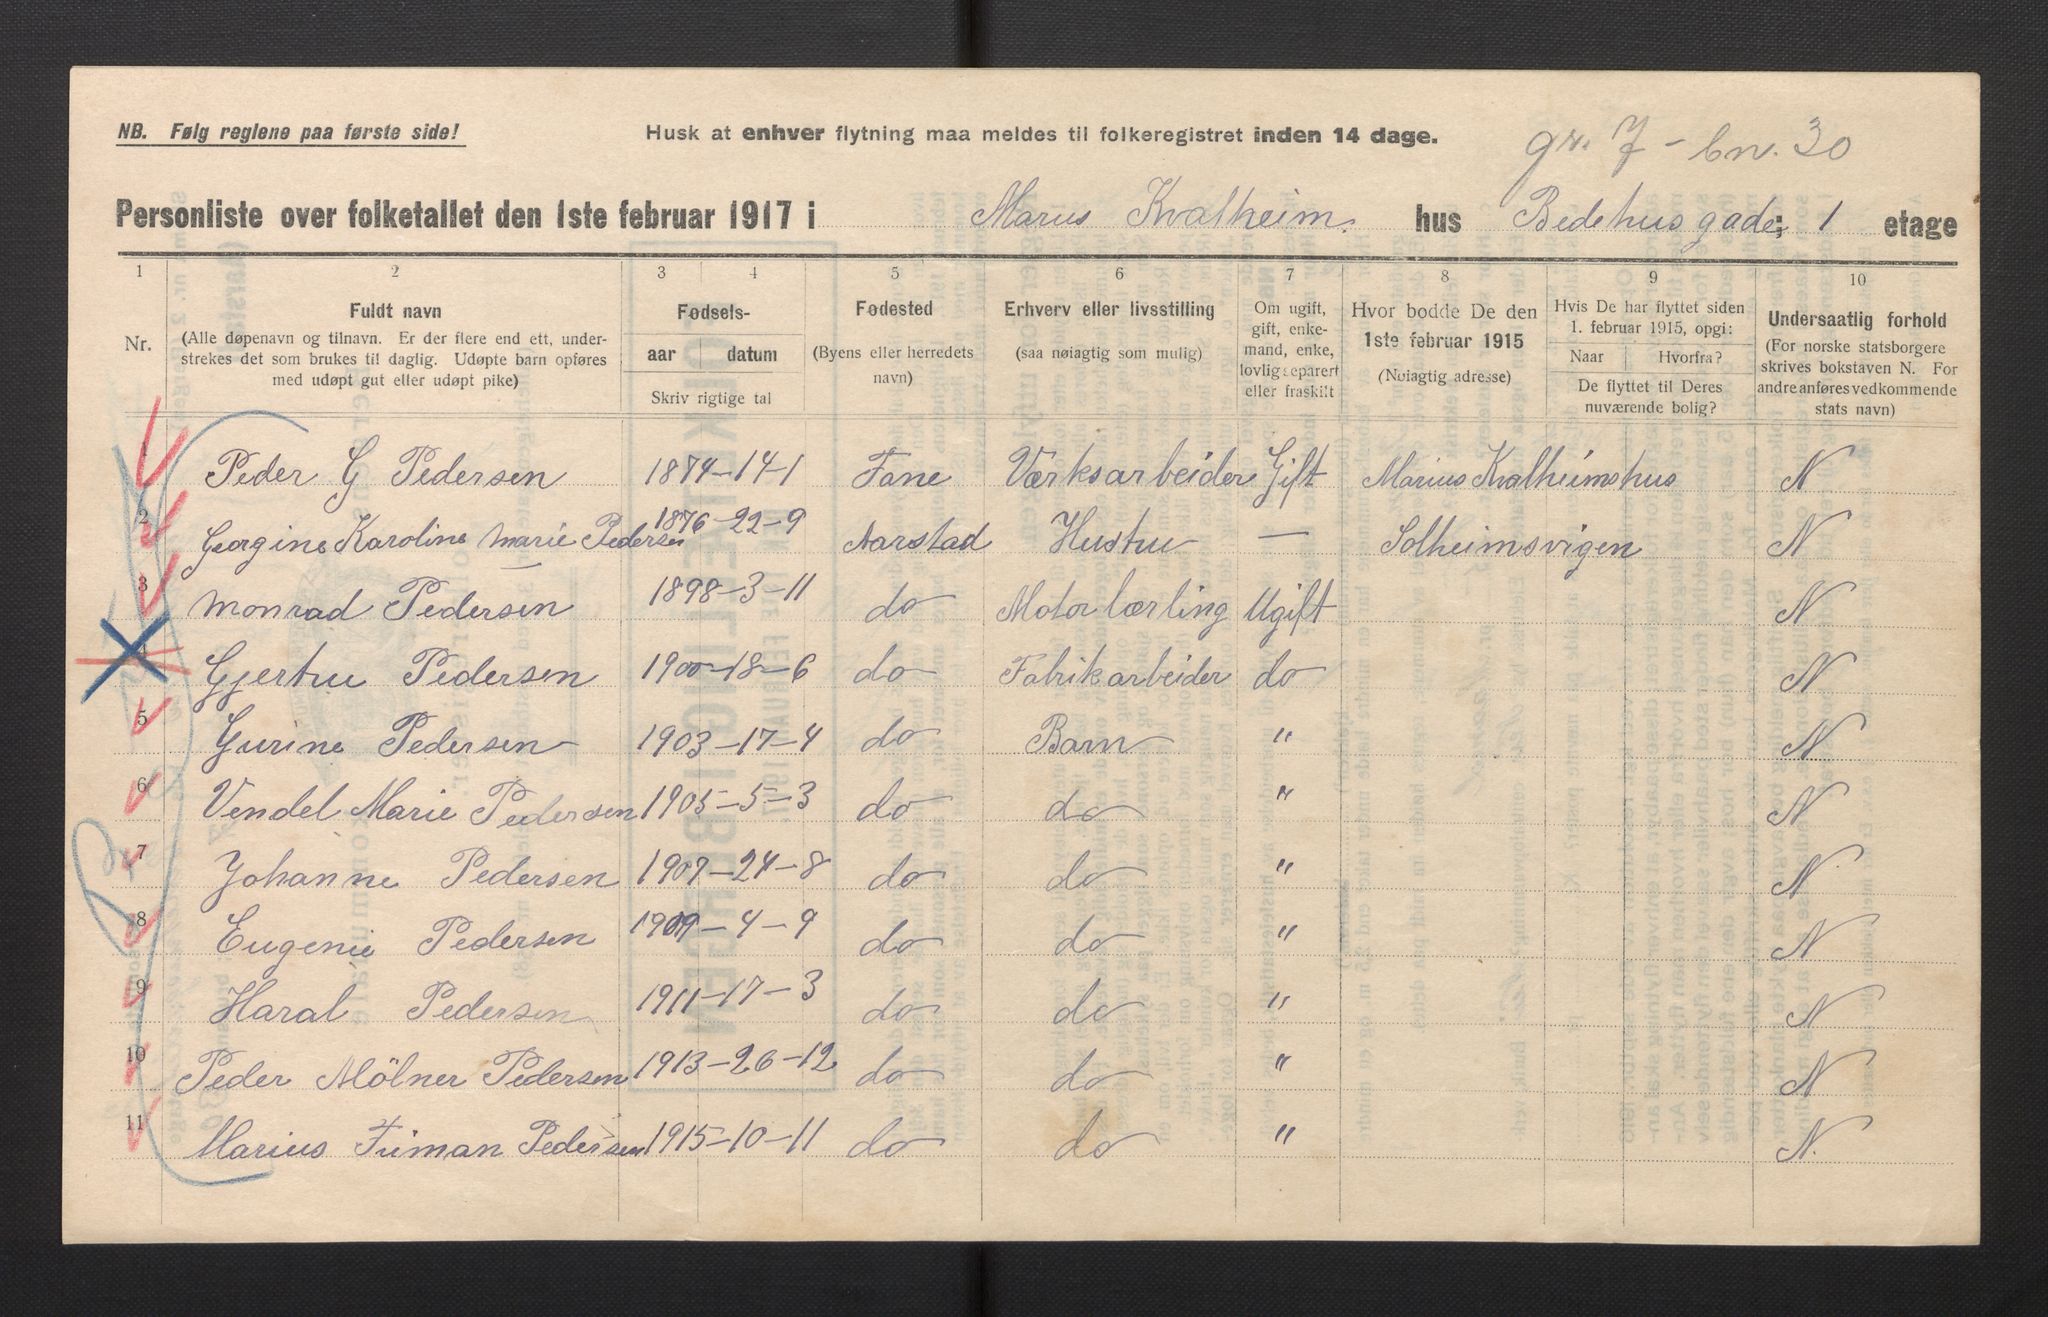 NB. Følg reglene paa første side!
Husk at enhver flytning maa meldes til folkeregistret inden 14 dage.
gr. 7 - bn. 30
Personliste over folketallet den 1ste februar 1917 i Marus Kvalheim. hus Bedehusgade; 1 etage
1 2 3 4 5 6 7 8 9 10
Nr.
Fuldt navn
(Alle døpenavn og tilnavn. Er der flere end ett, under-
strekes det som brukes til daglig. Udøpte barn opføres
med udøpt gut eller udøpt pike)
Fødsels-
aar datum
Skriv rigtige tal
Fødested
(Byens eller herredets
navn)
Erhverv eller livsstilling
(saa nøiagtig som mulig)
Om ugift,
gift, enke-
mand, enke,
lovlig separert
eller fraskilt
Hvor bodde De den
1ste februar 1915
(Nøiagtig adresse)
Hvis De har flyttet siden
1. februar 1915, opgi:
Naar Hvorfra?
De flyttet til Deres
nuværende bolig?
Undersaatlig forhold
(For norske statsborgere
skrives bokstaven N. For
andre anføres vedkommende
stats navn)
1 Peder G Pedersen 1874-14-1 Fane Værksarbeider Gift Marius Kvalheimshus N
2 Georgine Karoline Marie Pedersen 1876-22-9 Aarstad Hustru — Solheimsvigen N
3 Monrad Pedersen 1898-3-11 do Motorlærling Ugift N
4 Gjertru Pedersen 1900-18-6 do Fabrikarbeider do N
5 Gurine Pedersen 1903-17-4 do Barn " N
6 Vendel Marie Pedersen 1905-5-3 do do " N
7 Johanne Pedersen 1907-24-8 do do " N
8 Eugenie Pedersen 1909-4-9 do do " N
9 Haral Pedersen 1911-17-3 do do " N
10 Peder Mölner Pedersen 1913-26-12 do do " N
11 Marius Pedersen 1915-10-11 do do " N.